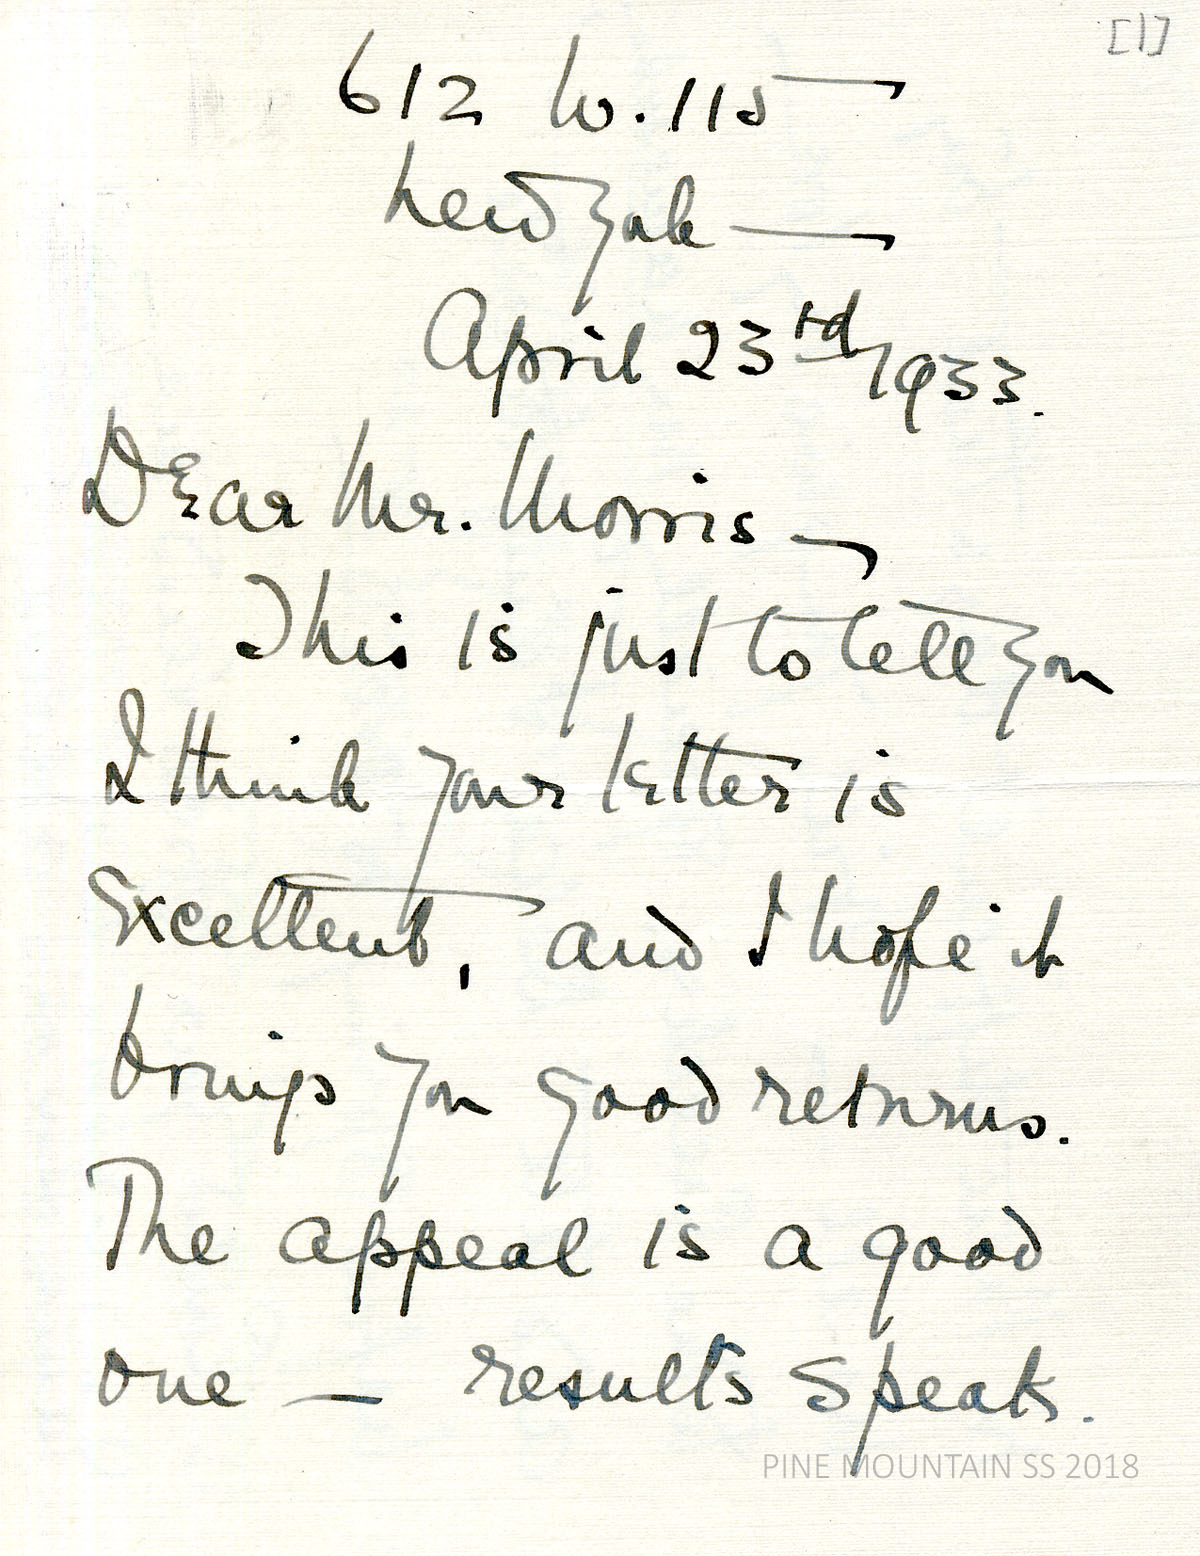 [1]
612 W. 115
New York —
April 23rd 1933.
Dear Mr. Morris —
This is just to tell you
I think your letter is
Excellent, and I hope it
brings you good returns.
The appeal is a good
one — results speak.
PINE MOUNTAIN SS 2018